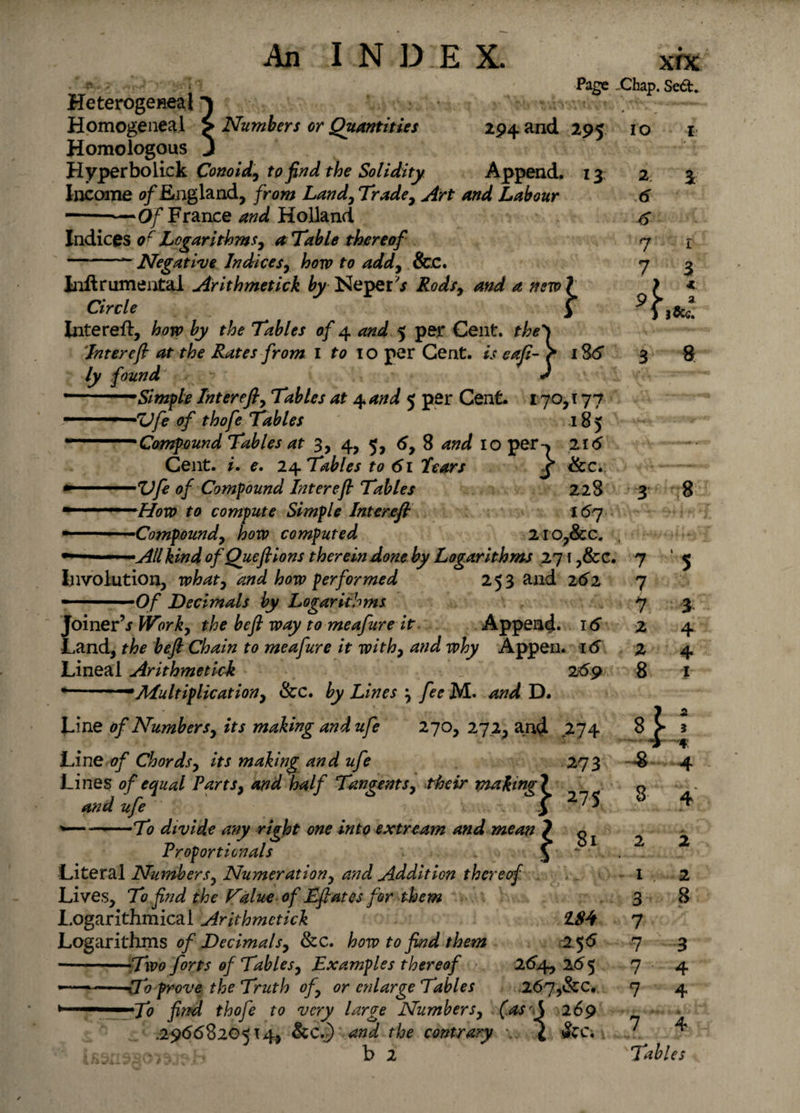 An INDEX. xix
Page Chap. Sect.
Heterogeneal
Homogeneal } Numbers or Quantities 294 and 295 10 1
Homologous
Hyperbolick Conoid, to find the Solidity Append. 13 2 3
Income of England, from Land, Trade, Art and Labour 6
———Of France and Holland 6
Indices of Logarithms, a Table thereof 7 1
———Negative Indices, how to add, &c. 7 3
Inſtrumental Arithmetick by Neper's Rods, and a new } 9 }
Circle 2 3&c.
Intereſt, how by the Tables of 4 and 5 per Cent. the
Intereſt at the Rates from 1 to 10 per Cent. is eaſi- } 186 3 8
ly found
———Simple Intereſt, Tables at 4 and 5 per Cent. 170,177
———Uſe of thoſe Tables 185
———Compound Tables at 3, 4, 5, 6, 8 and 10 per 216
Cent. i. e. 24 Tables to 61 Years } &c.
———Uſe of Compound Intereſt Tables 228 3 8
———How to compute Simple Intereſt 167
———Compound, how computed 210,&c.
———All kind of Queſtions therein done by Logarithms 271,&c. 7 5
Involution, what, and how performed 253 and 262 7
———Of Decimals by Logarithms 7 3
Joiner's Work, the beſt way to meaſure it Append. 16 2 4
Land, the beſt Chain to meaſure it with, and why Appen. 16 2 4
Lineal Arithmetick 269 8 1
———Multiplication, &c. by Lines ; ſee M. and D.
Line of Numbers, its making and uſe 270, 272, and 274 8 } 2 3 4
Line of Chords, its making and uſe 273 8 4
Lines of equal Parts, and half Tangents, their making }
and uſe 275 8 4
———To divide any right one into extream and mean }
Proportionals 81 2 2
Literal Numbers, Numeration, and Addition thereof 1 2
Lives, To find the Value of Eſtates for them 3 8
Logarithmical Arithmetick 284 7
Logarithms of Decimals, &c. how to find them 256 7 3
———Two ſorts of Tables, Examples thereof 264, 265 7 4
———To prove the Truth of, or enlarge Tables 267,&c. 7 4
———To find thoſe to very large Numbers, (as } 269
.2966820514, &c.) and the contrary &c. 7 4
b 2 Tables